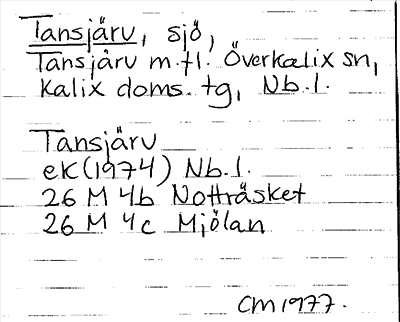 Tansjärv, sjö,
Tansjärv m.fl. Överkalix sn,
Kalix doms. tg, Nb. l.
Tansjärv
ek (1974) Nb. l.
26 M 4b Notträsket
26 M 4c Mjölan
CM 1977.